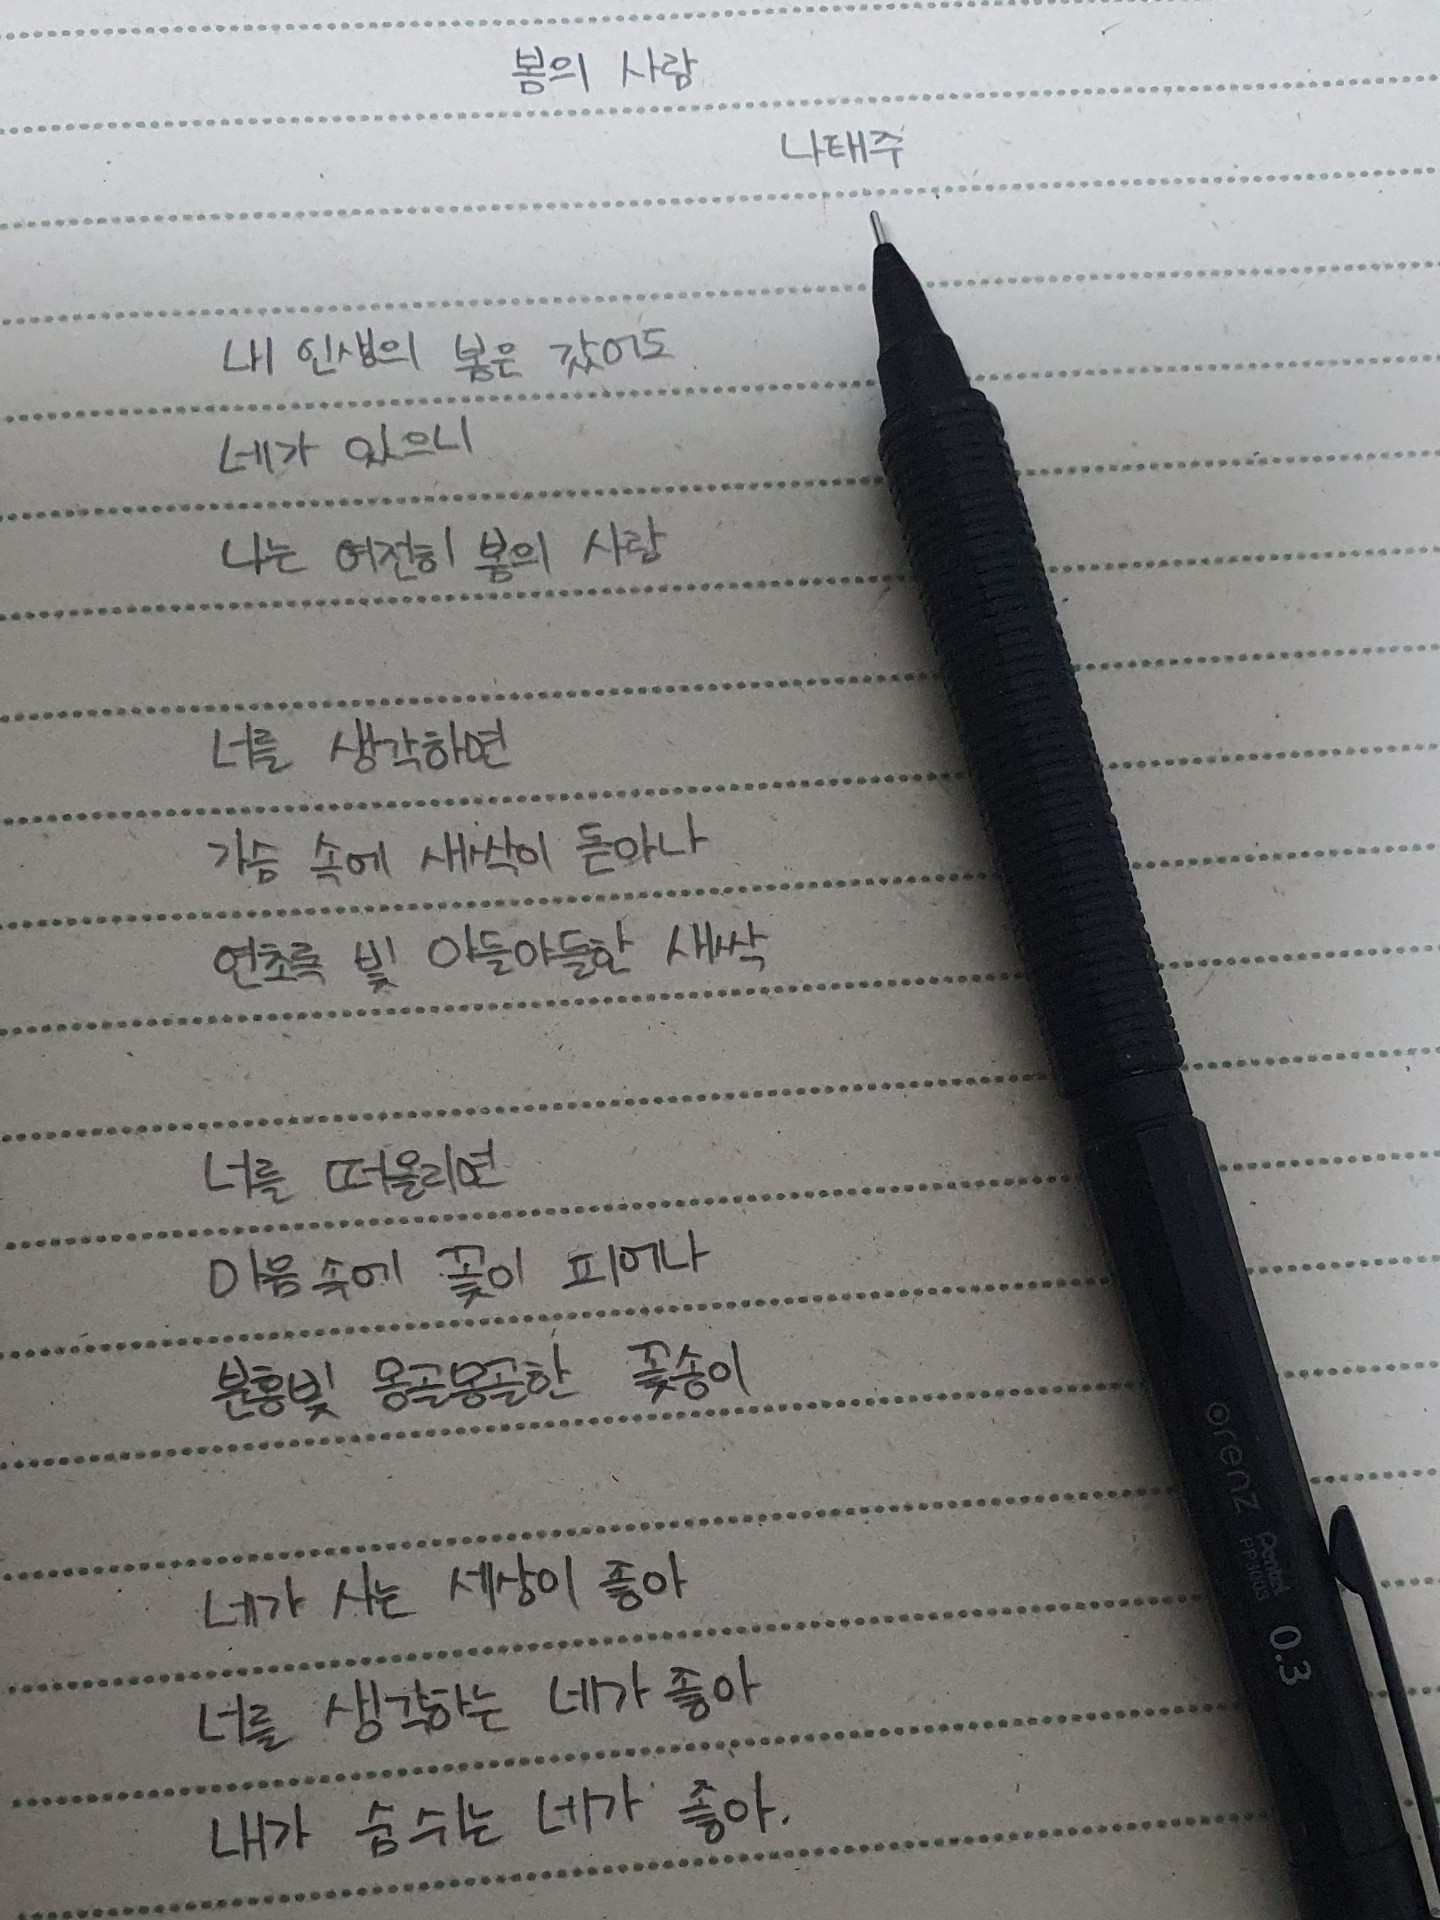 봄의 사람
나태주
내 인생의 봄은 갔어도
네가 있으니
나는 여전히 봄의 사람
너를 생각하면
가슴 속에 새싹이 돋아나
연초록 빛 야들야들한 새싹
너를 떠올리면
마음속에 꽃이 피어나
분홍빛 몽골몽골한 꽃송이
네가 사는 세상이 좋아
너를 생각하는 네가 좋아
내가 숨쉬는 네가 좋아.
orenz
Pentel
PP3003
0.3